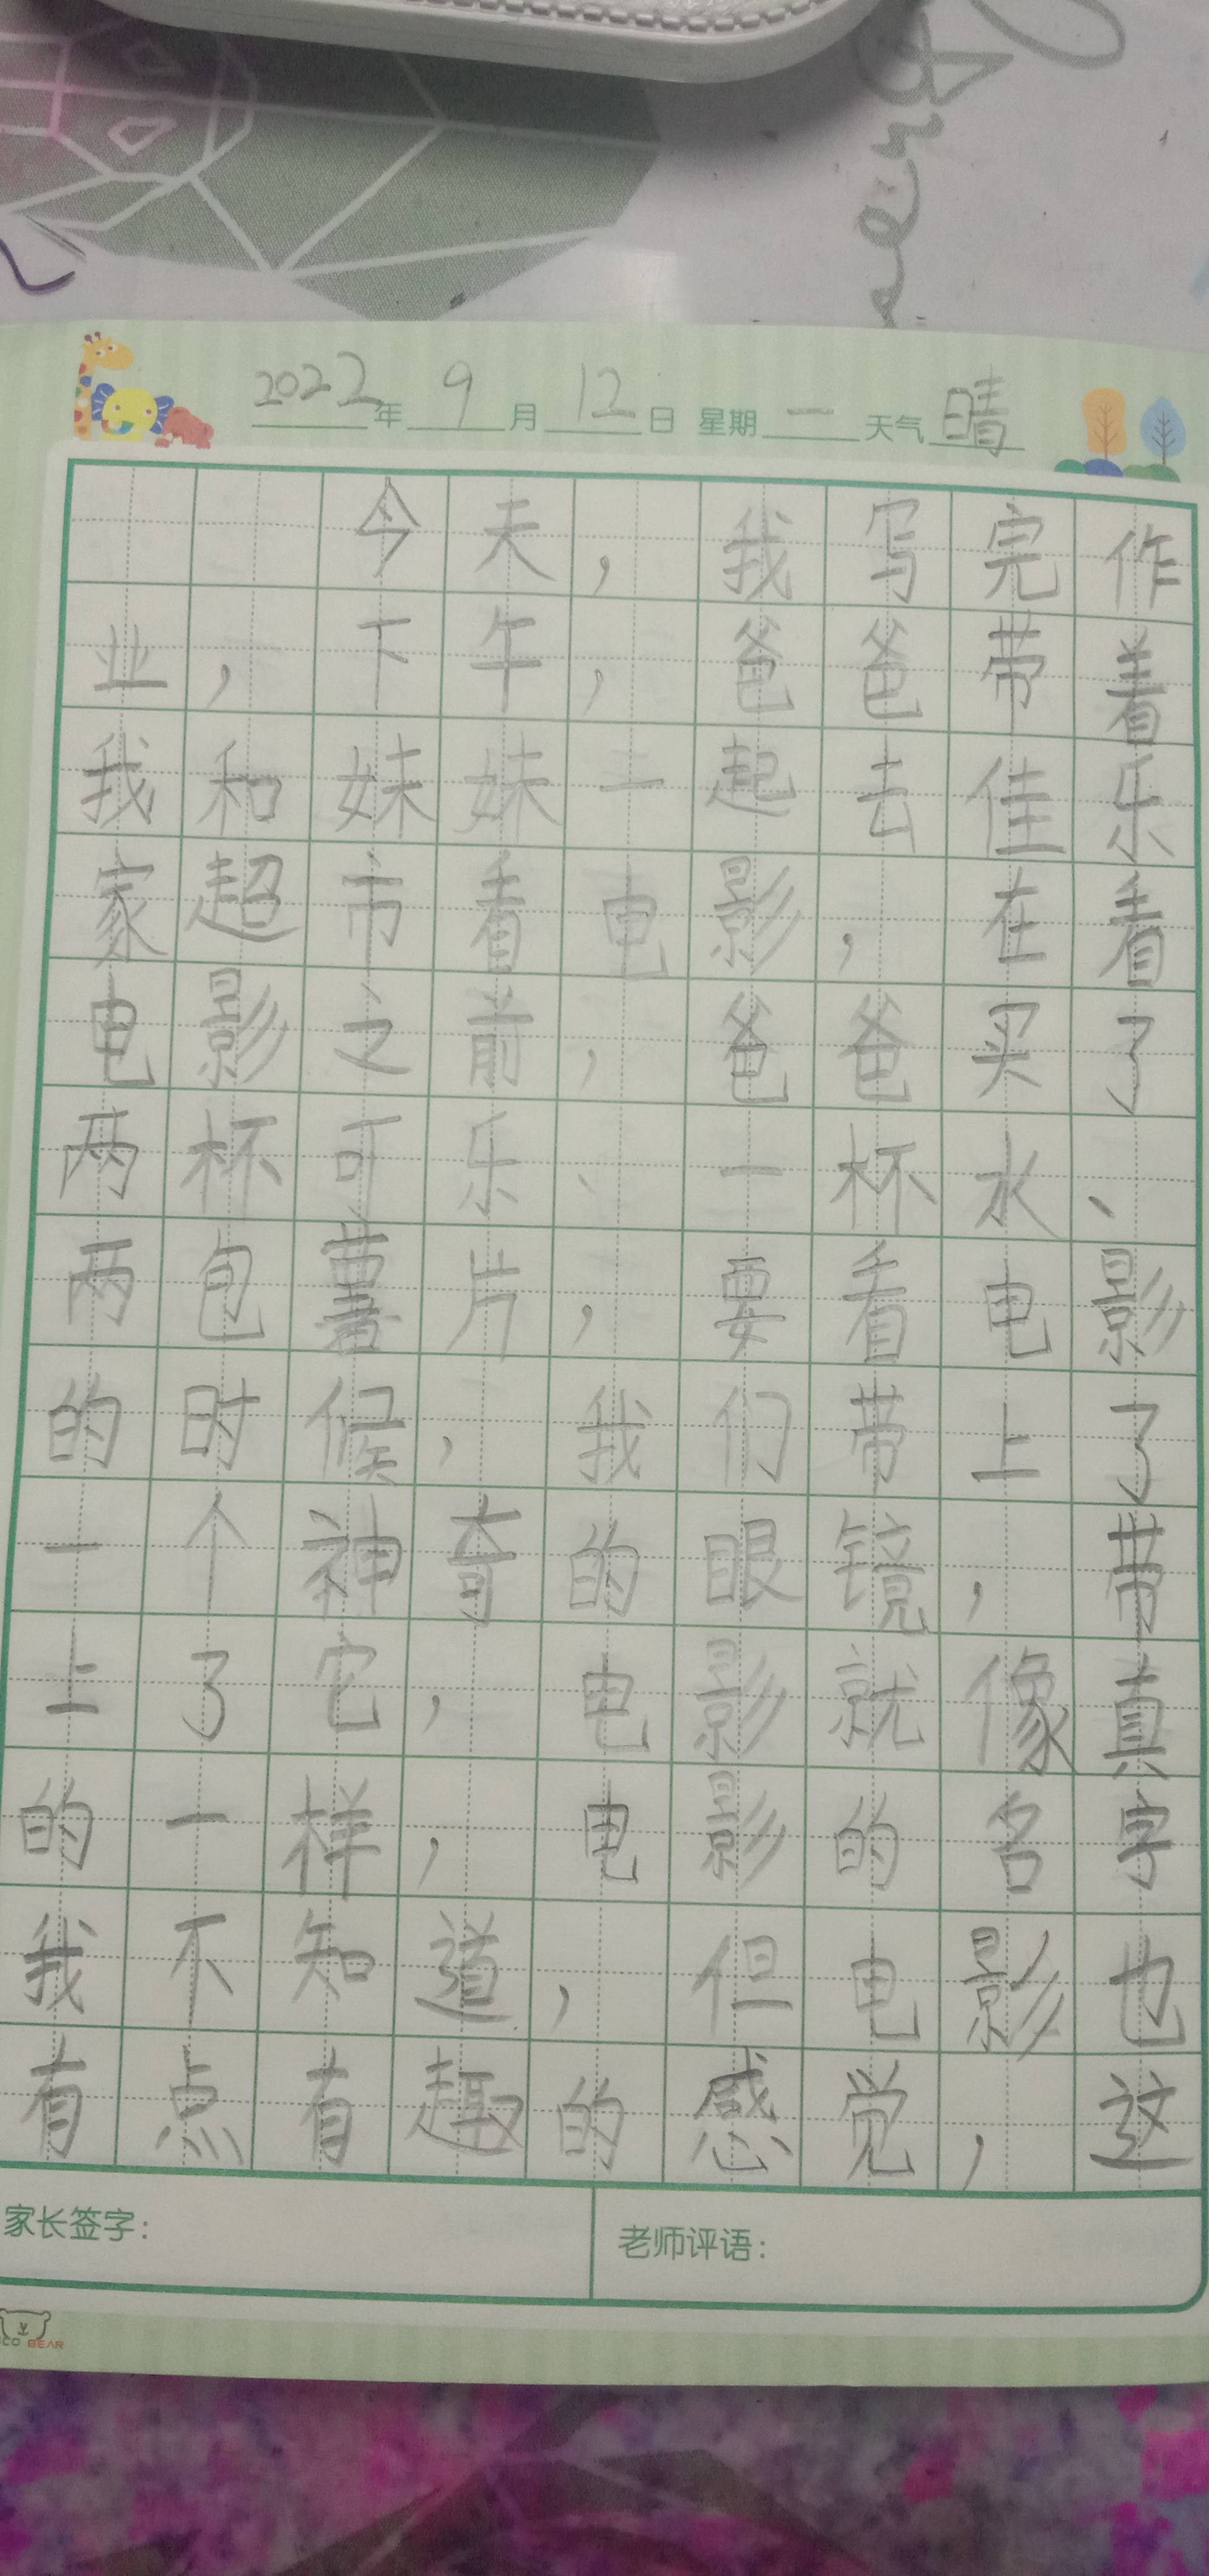 2022年9月12日 星期一 天气晴
今天，我写完作
业，下午，爸爸带着
我和妹妹一起去佳乐
家超市看电影，在看
电影之前，爸爸买了
两杯可乐、一杯水、
两包薯片，要看电影
的时候，我们带上了
一个神奇的眼镜，带
上了它，电影就像真
的一样，电影的名字
我不知道，但电影也
有点有趣的感觉，这
家长签字：
老师评语：
CO BEAR